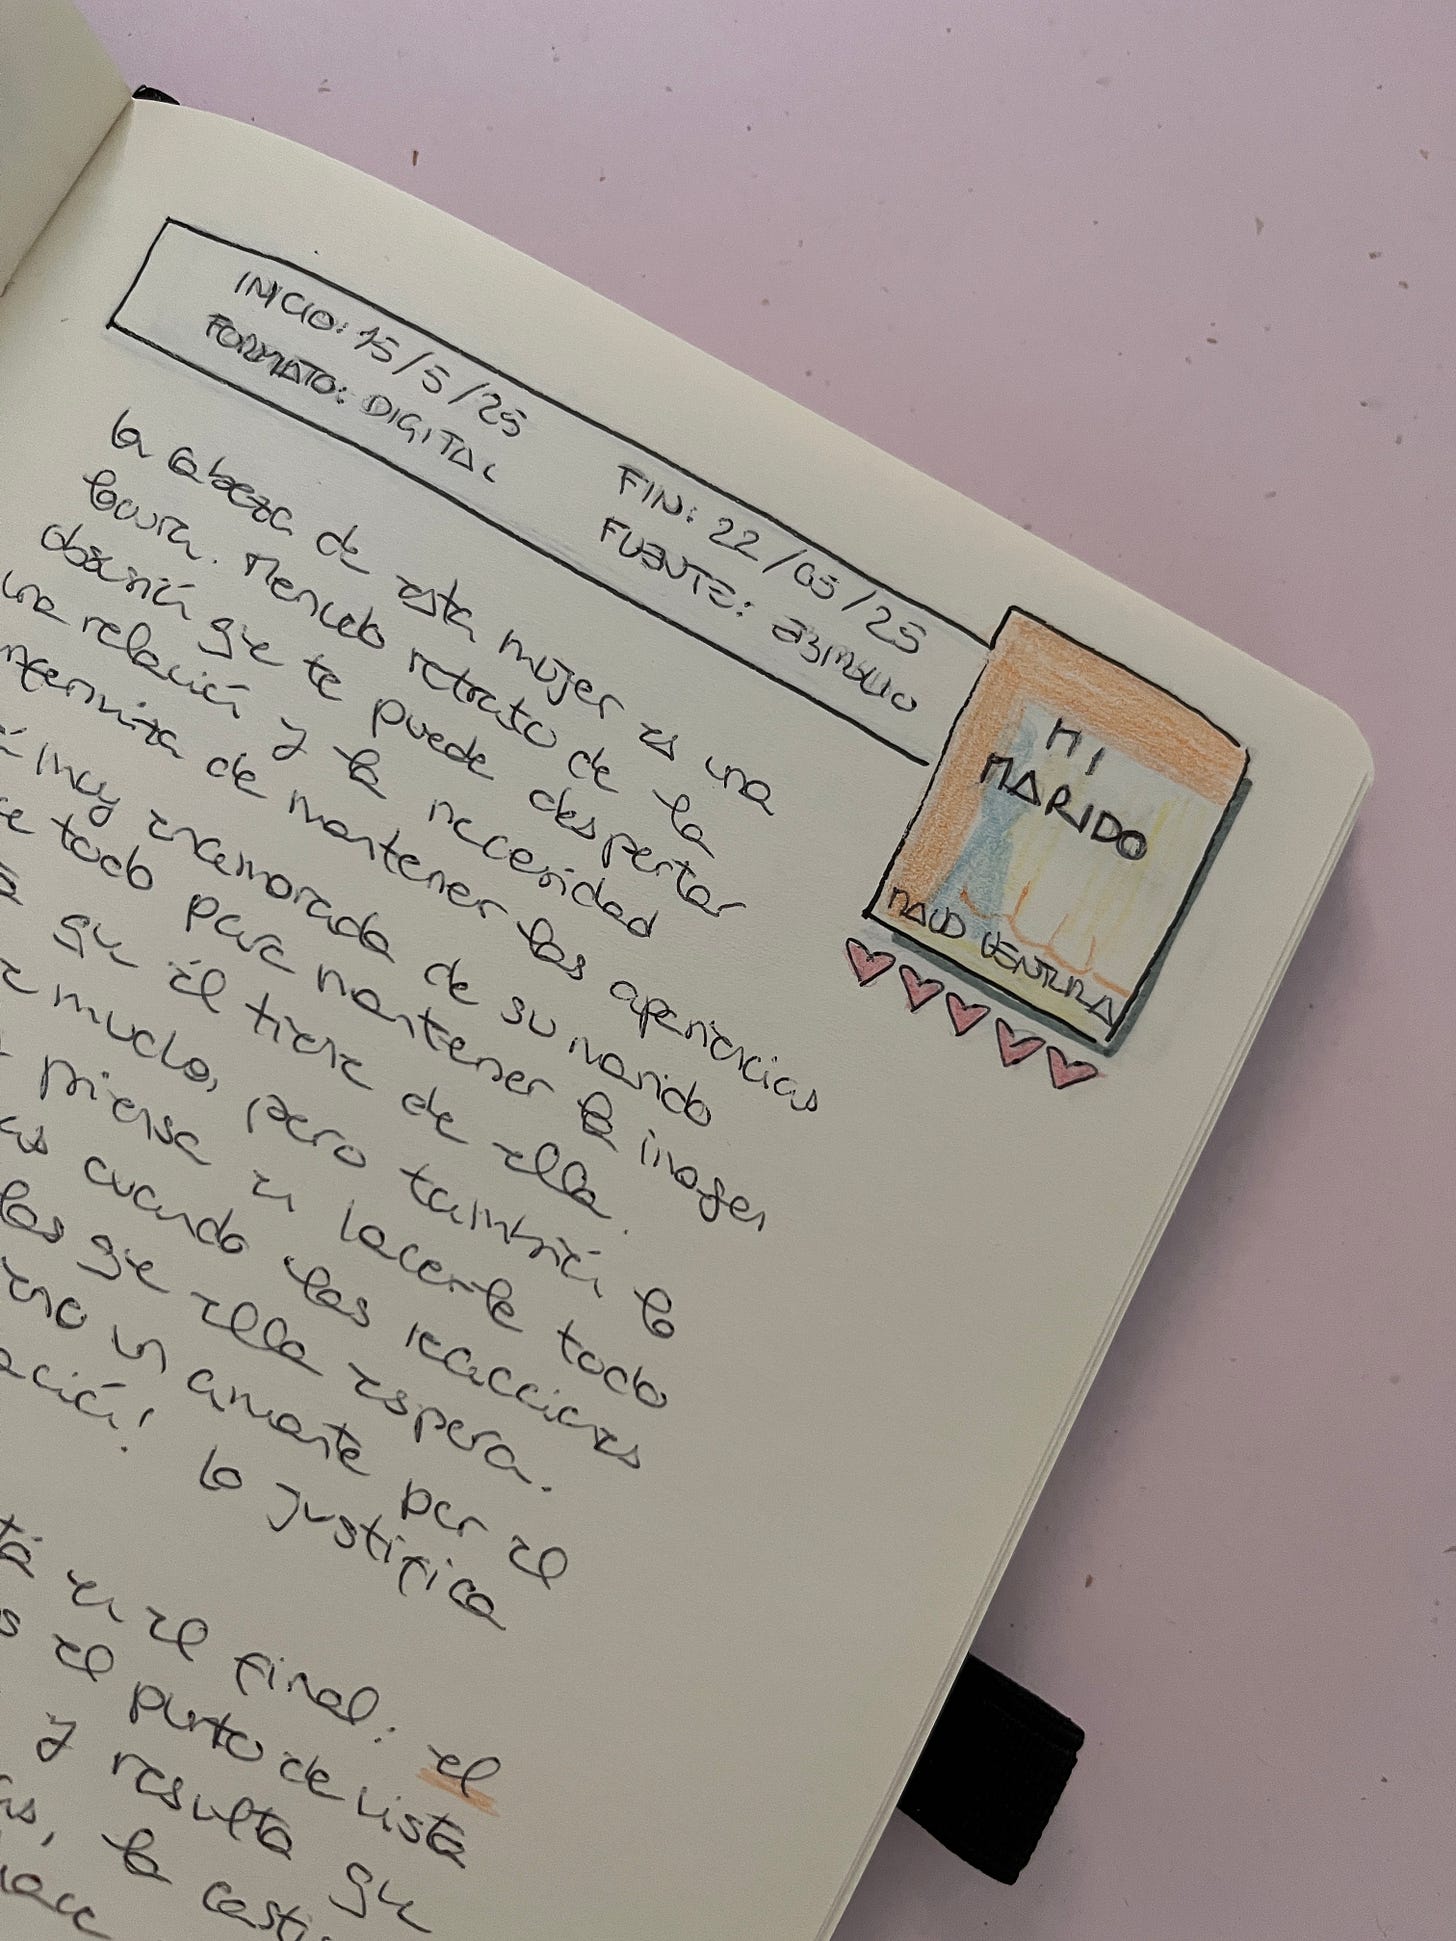 INICIO: 15/5/25 FIN: 22/05/25
FORMATO: DIGITAL FUENTE: EBIBLIO
MI
MARIDO
MAUD VENTURA
la cabeza de esta mujer es una
locura. Menudo retrato de la
obsesión que te puede despertar
una relación y la necesidad
enfermiza de mantener las apariencias
muy enamorada de su marido
todo para mantener la imagen
que él tiene de ella.
mucho, pero también le
piensa en hacerle todo
cuando las reacciones
las que ella espera.
un amante por el
lo justifica
en el final: el
el punto de vista
y resulta que
la